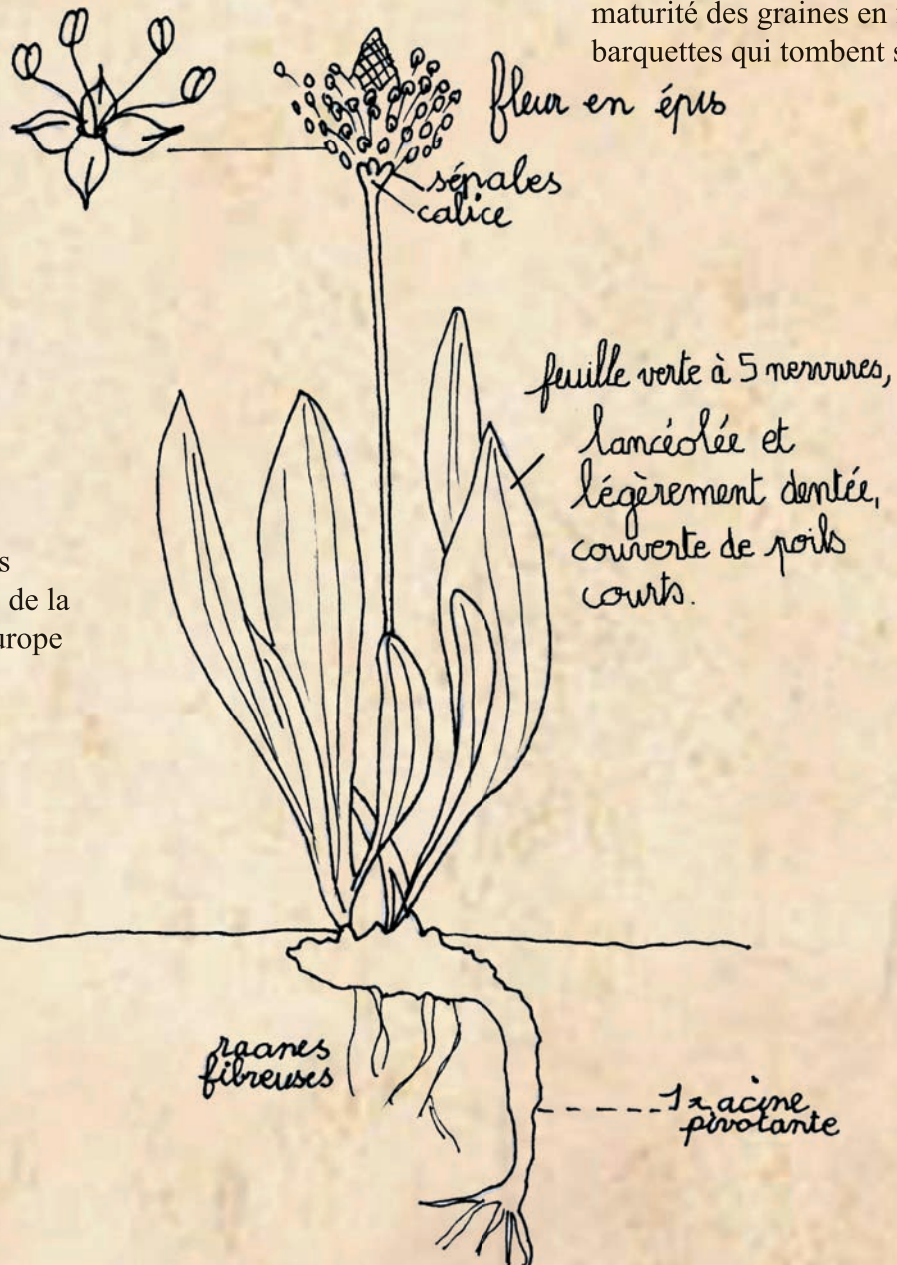 maturité des graines en
barquettes qui tombent
fleur en épis
sépales
calice
feuille verte à 5 nervures,
lancéolée et
légèrement dentée,
couverte de poils
courts.
de la
racines
fibreuses
1 racine
pivotante